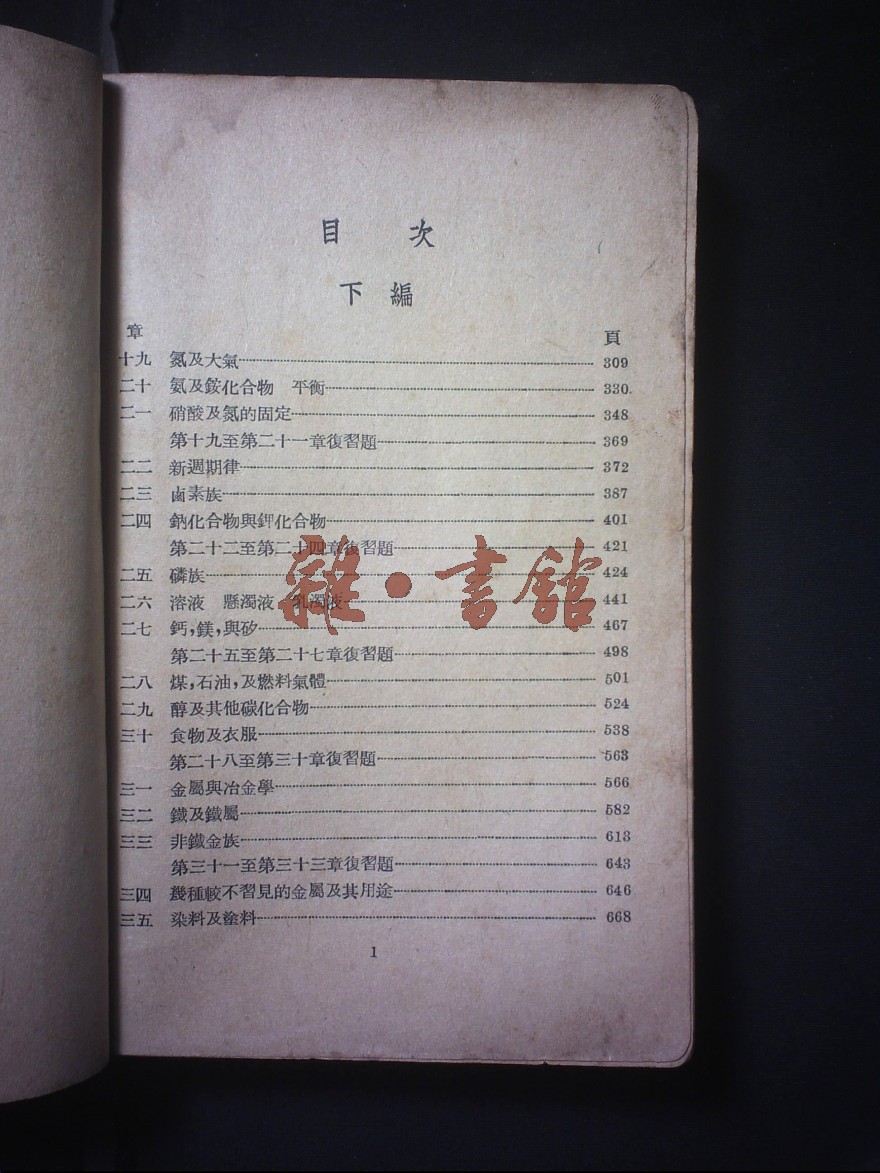 目 次
下 編
章 頁
十九 氮及大氣 309
二十 氨及銨化合物 平衡 330
二一 硝酸及氮的固定 348
第十九至第二十一章復習題 369
二二 新週期律 372
二三 鹵素族 387
二四 鈉化合物與鉀化合物 401
第二十二至第二十四章復習題 421
二五 磷族 424
二六 溶液 懸濁液 乳濁液 441
二七 鈣,鎂,與矽 467
第二十五至第二十七章復習題 498
二八 煤,石油,及燃料氣體 501
二九 醇及其他碳化合物 524
三十 食物及衣服 538
第二十八至第三十章復習題 563
三一 金屬與冶金學 566
三二 鐵及鐵屬 582
三三 非鐵金族 613
第三十一至第三十三章復習題 643
三四 幾種較不習見的金屬及其用途 646
三五 染料及塗料 668
1
雜·書館